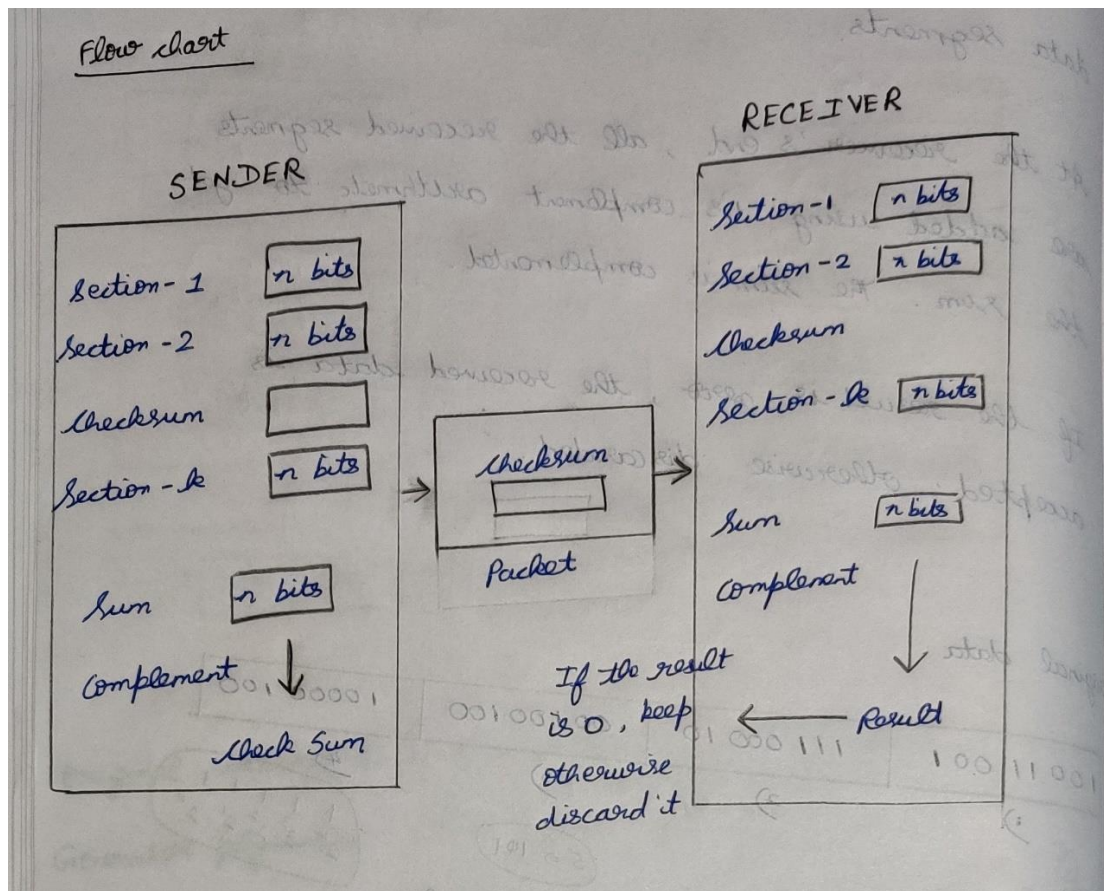 Flow chart
SENDER
Section-1 n bits
Section-2 n bits
Checksum
Section-k n bits
Sum n bits
complement
Check Sum
Checksum
Packet
RECEIVER
Section-1 n bits
Section-2 n bits
Checksum
Section-k n bits
Sum n bits
complement
Result
If the result
is 0, keep
otherwise
discard it